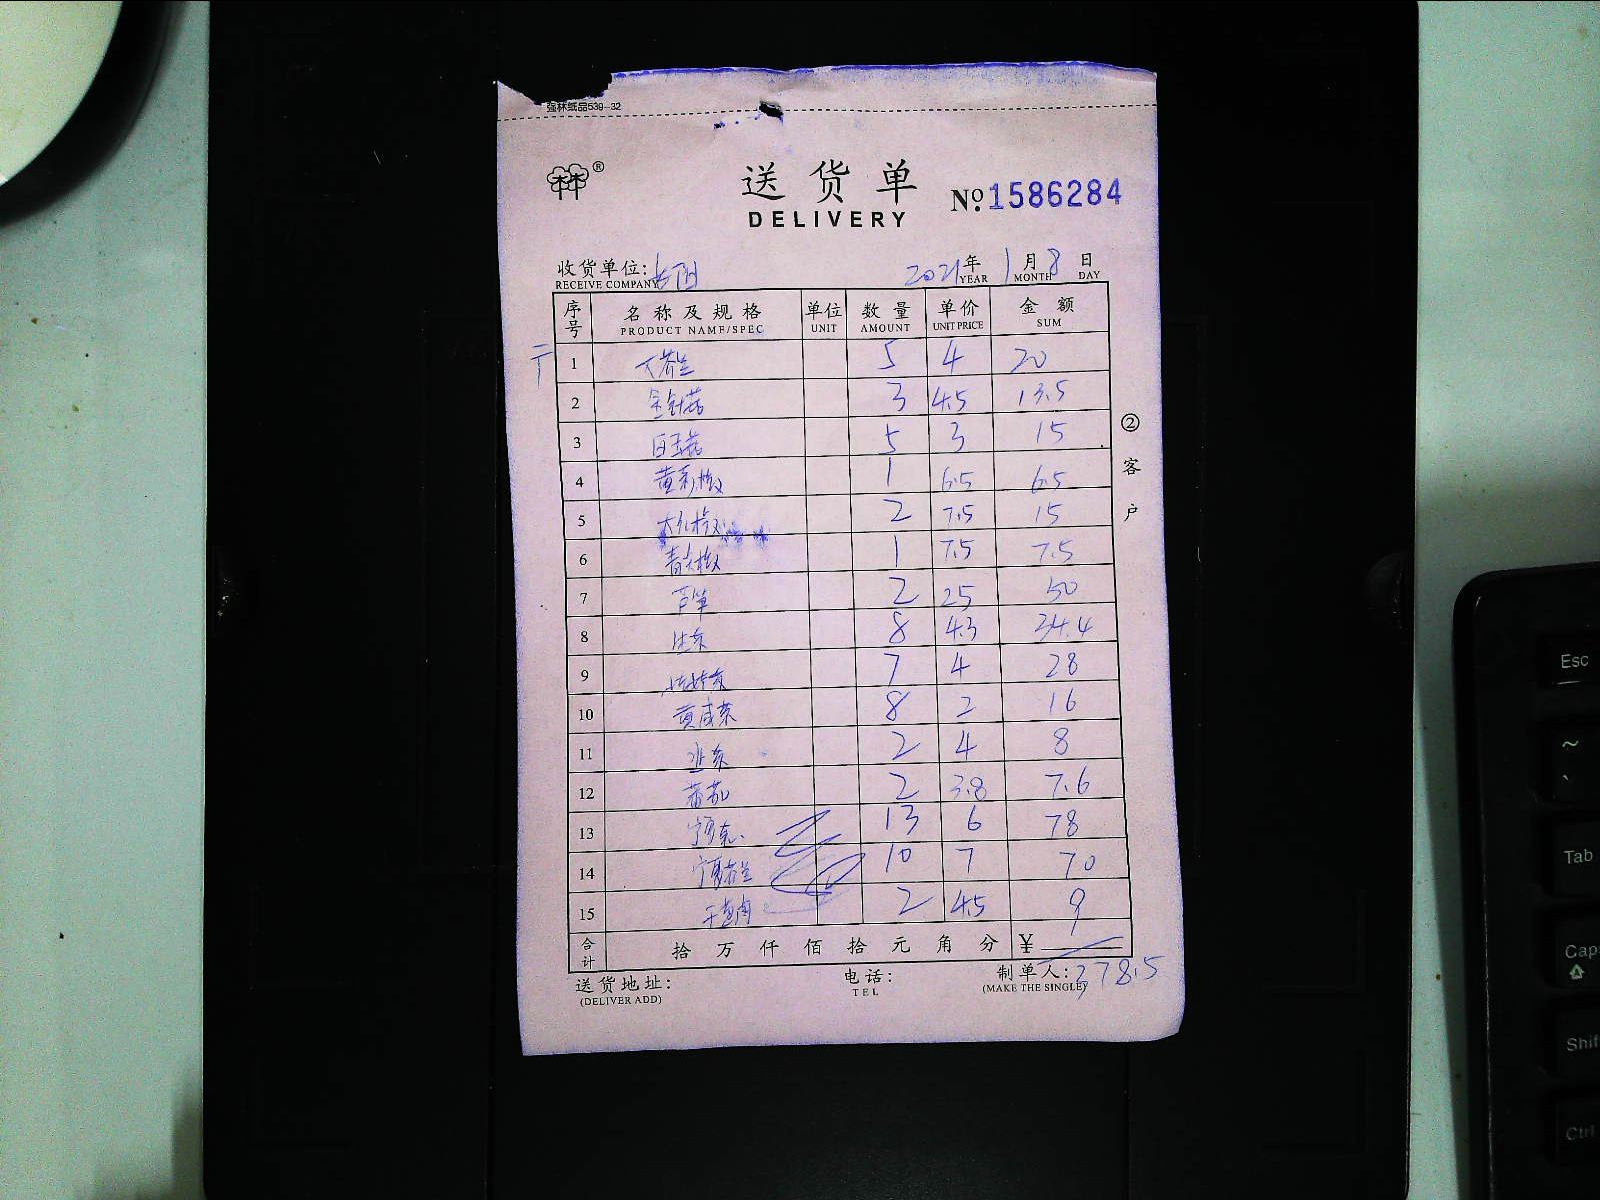 强林纸品539-32
林®
送货单
DELIVERY
No.1586284
收货单位:
RECEIVE COMPANY
2021年 1月8日
YEAR MONTH DAY
序号 名称及规格 单位 数量 单价 金额
PRODUCT NAME/SPEC UNIT AMOUNT UNIT PRICE SUM
1 大芥兰 5 4 20
2 金针菇 3 4.5 13.5
3 白玉菇 5 3 15
4 黄彩椒 1 6.5 6.5
5 大红椒 2 7.5 15
6 青尖椒 1 7.5 7.5
7 芦笋 2 25 50
8 生菜 8 4.3 34.4
9 7 4 28
10 黄咸菜 8 2 16
11 韭菜 2 4 8
12 番茄 2 3.8 7.6
13 13 6 78
14 宁夏芥兰 10 7 70
15 2 4.5 9
合计 拾万仟佰拾元角分 ¥ 378.5
②客户
送货地址:
(DELIVER ADD)
电话:
TEL
制单人:
(MAKE THE SINGLE)
Esc
~
`
Tab
Caps
Shif
Ctrl